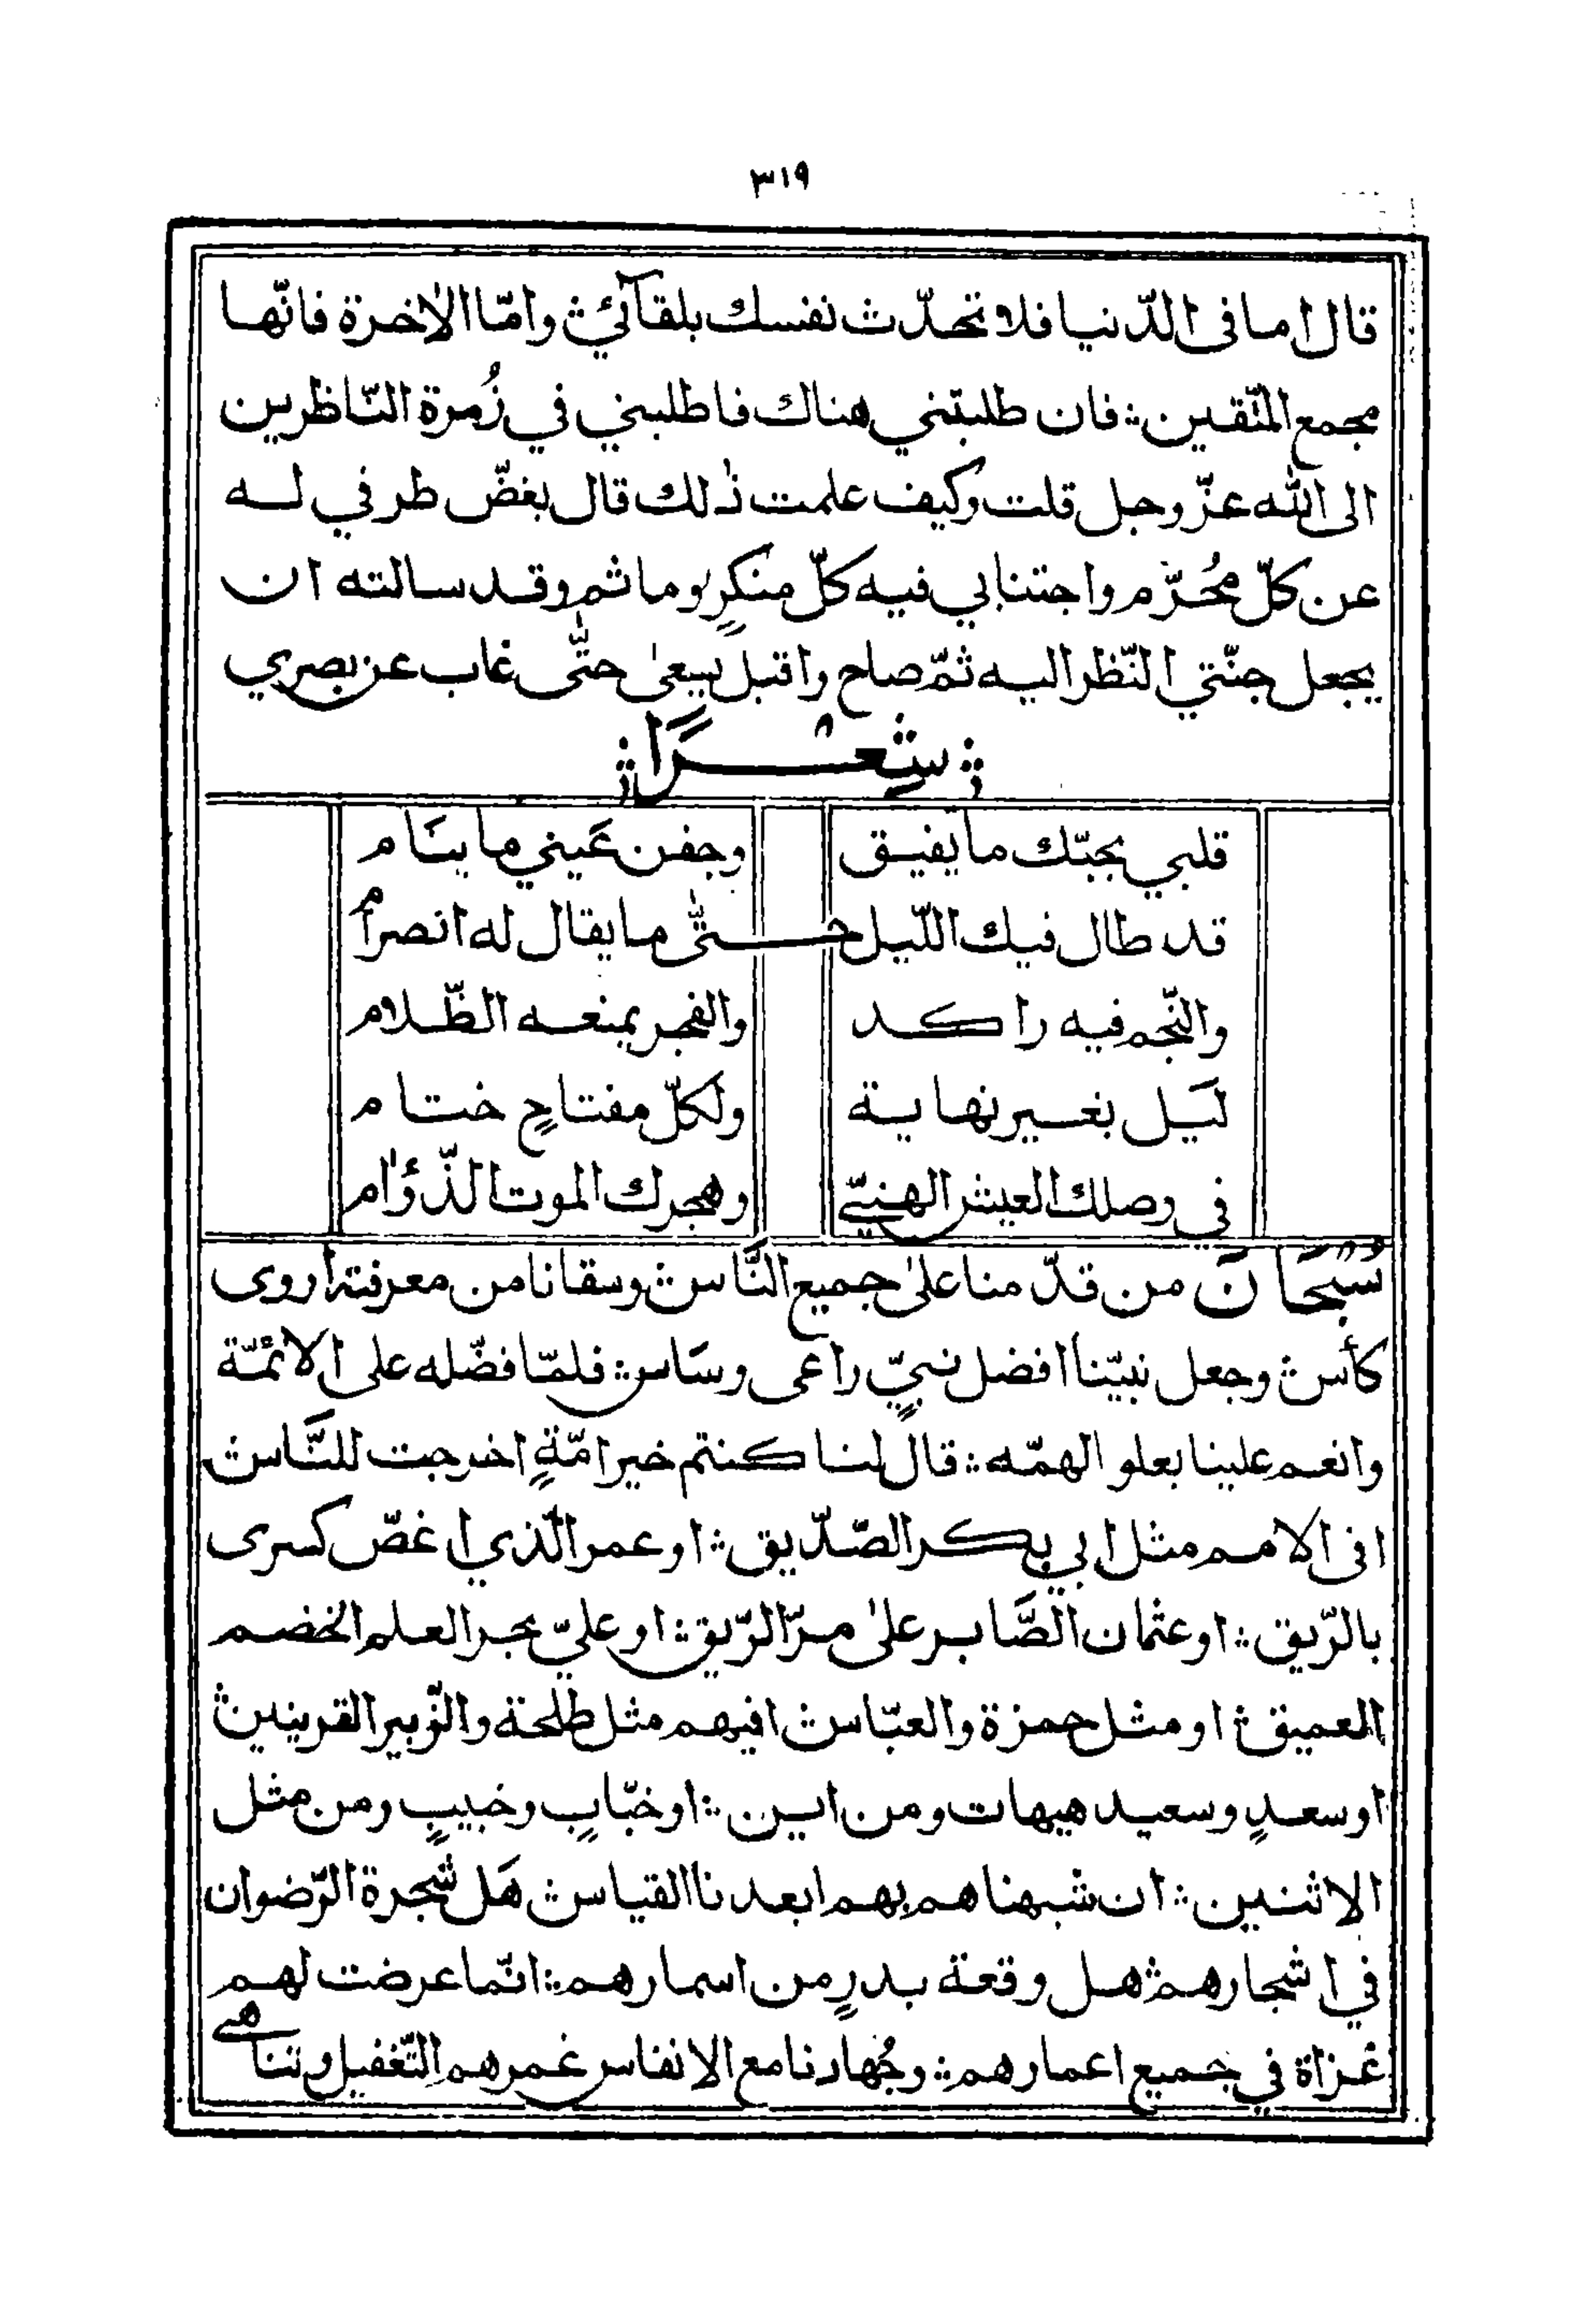 ٣١٩
قال اما فى الدّنيا فلا تحدّث نفسك بلقآئي ؞ وامّا الاٰخرة فانّها
مجمع المتّقين ؞ فان طلبتني هناك فاطلبني في زُمرة النّاظرين
الى الله عزّ وجل قلت وكيف علمت ذٰلك قال بغضّ طرفي لـه
عن كلّ محُرّم واجتنابي فيه كلّ منكرٍ وماثم وقد سالته ان
يجعل جنّتي النّظر اليه ثمّ صاح واقبل يسعىٰ حتّٰى غاب عن بصري
؞ شِعْـــرًا ؞
قلبي بحبّك ما يفيـق وجفن عَيني ما ينَام
قد طال فيك اللّيل حـــتّٰى ما يقال له انصرامُ
والنّجم فيه راكد والفجر يمنعـه الظّلام
ليَل بغير نهاية ولكلّ مفتاحٍ ختام
في وصلك العيش الهنيّ وهجرك الموت الذّؤام
سُبْحَانَ من قدّمنا علىٰ جميع النَّاس ؞ وسقانا من معرفته اروى
كأس ؞ وجعل نبيّنا افضل نبيٍّ راعى وسَاس ؞ فلمّا فضّله على الائمّة
وانعم علينا بعلو الهمّه ؞ قال لنا كنتم خير امّةٍ اخرجت للنَّاس ؞
افى الامم مثل ابي بكر الصّدّيق ؞ او عمر الّذي اغصّ كسرى
بالرّيق ؞ او عثمان الصَّابر علىٰ مرّ الرّيق ؞ او عليّ بحر العلم الخضم
العميق ؞ او مثل حمزة والعبّاس ؞ افيهم مثل طلحة والزّبير القرينين ؞
او سعدٍ وسعيد هيهات ومن اين ؞ او خبّابٍ وخبيبٍ ومن مثل
الاثنين ؞ ان شبهناهم بهم ابعدنا القياس ؞ هَل شجرة الرّضوان
في اشجارهم ؞ هل وقعة بدرٍ من اسمارهم ؞ انّما عرضت لهم
غزاة في جميع اعمارهم ؞ وجُهادنا مع الانفاس غمرهم التّغفيل وتناهى